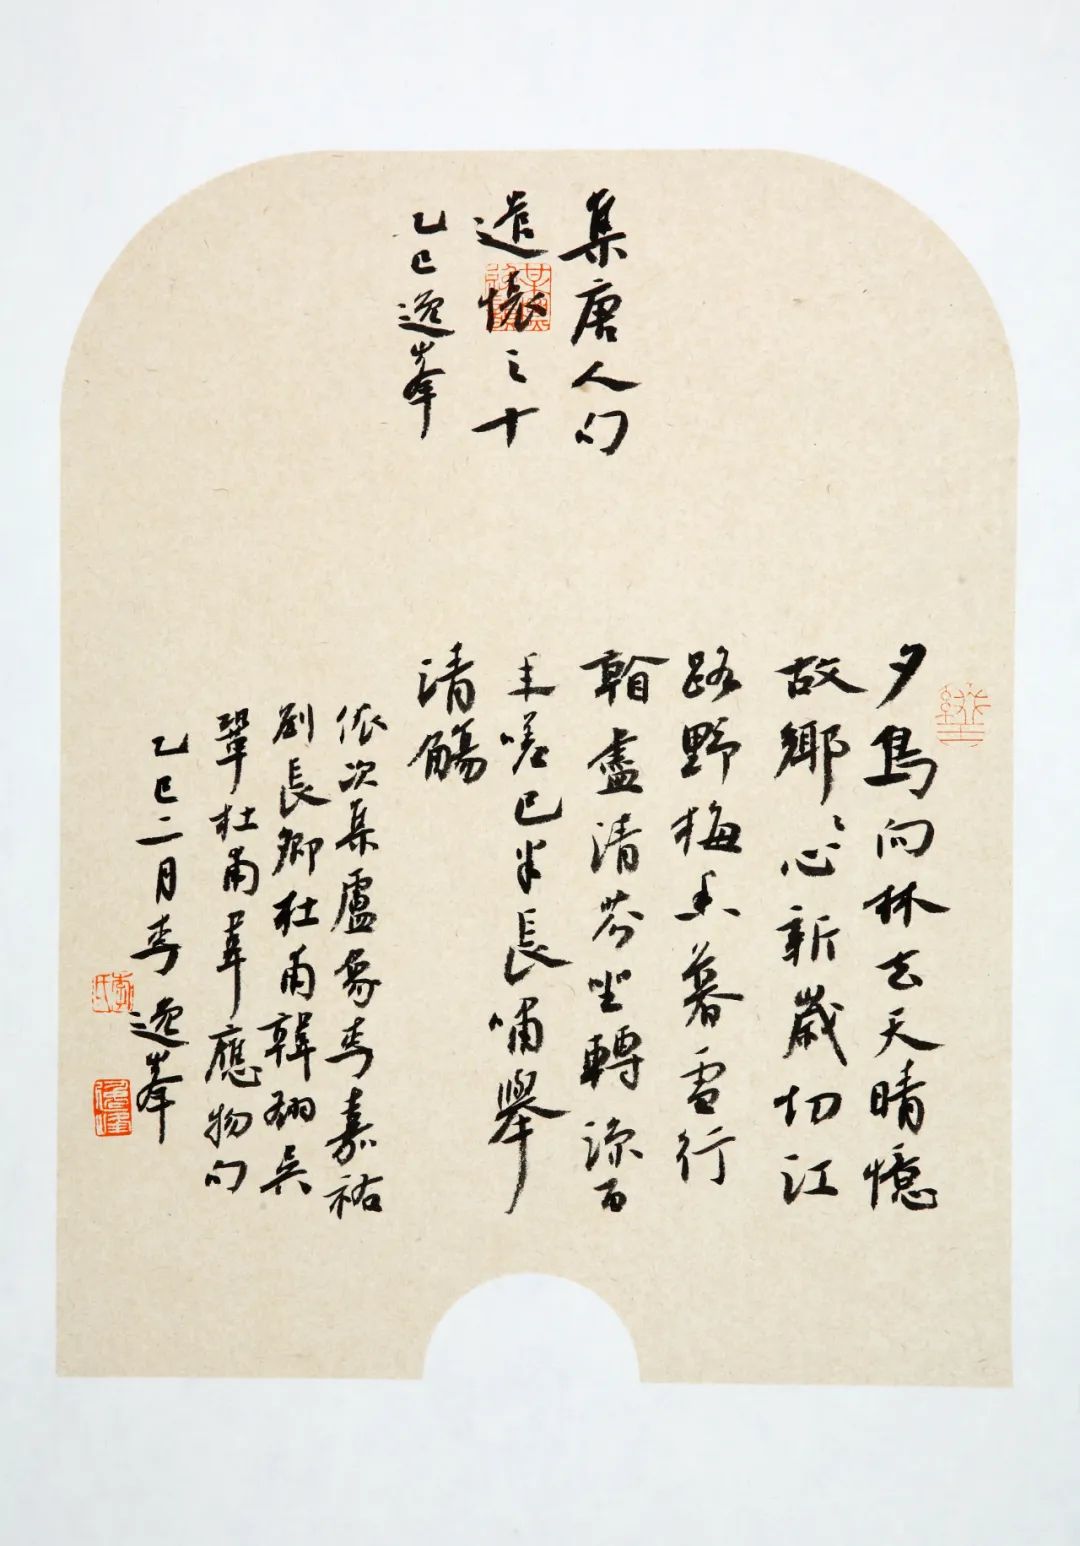 集唐人句
遣懷之十
乙巳逸峯
夕鳥向林去天晴憶
故鄉〻心新歲切江
路野梅香暮雪行
看盡清芬坐轉深百
年嗟已半長嘯舉
清觴
依次集盧象李嘉祐
劉長卿杜甫韓翃吳
鞏杜甫韋應物句
乙巳二月李逸峯